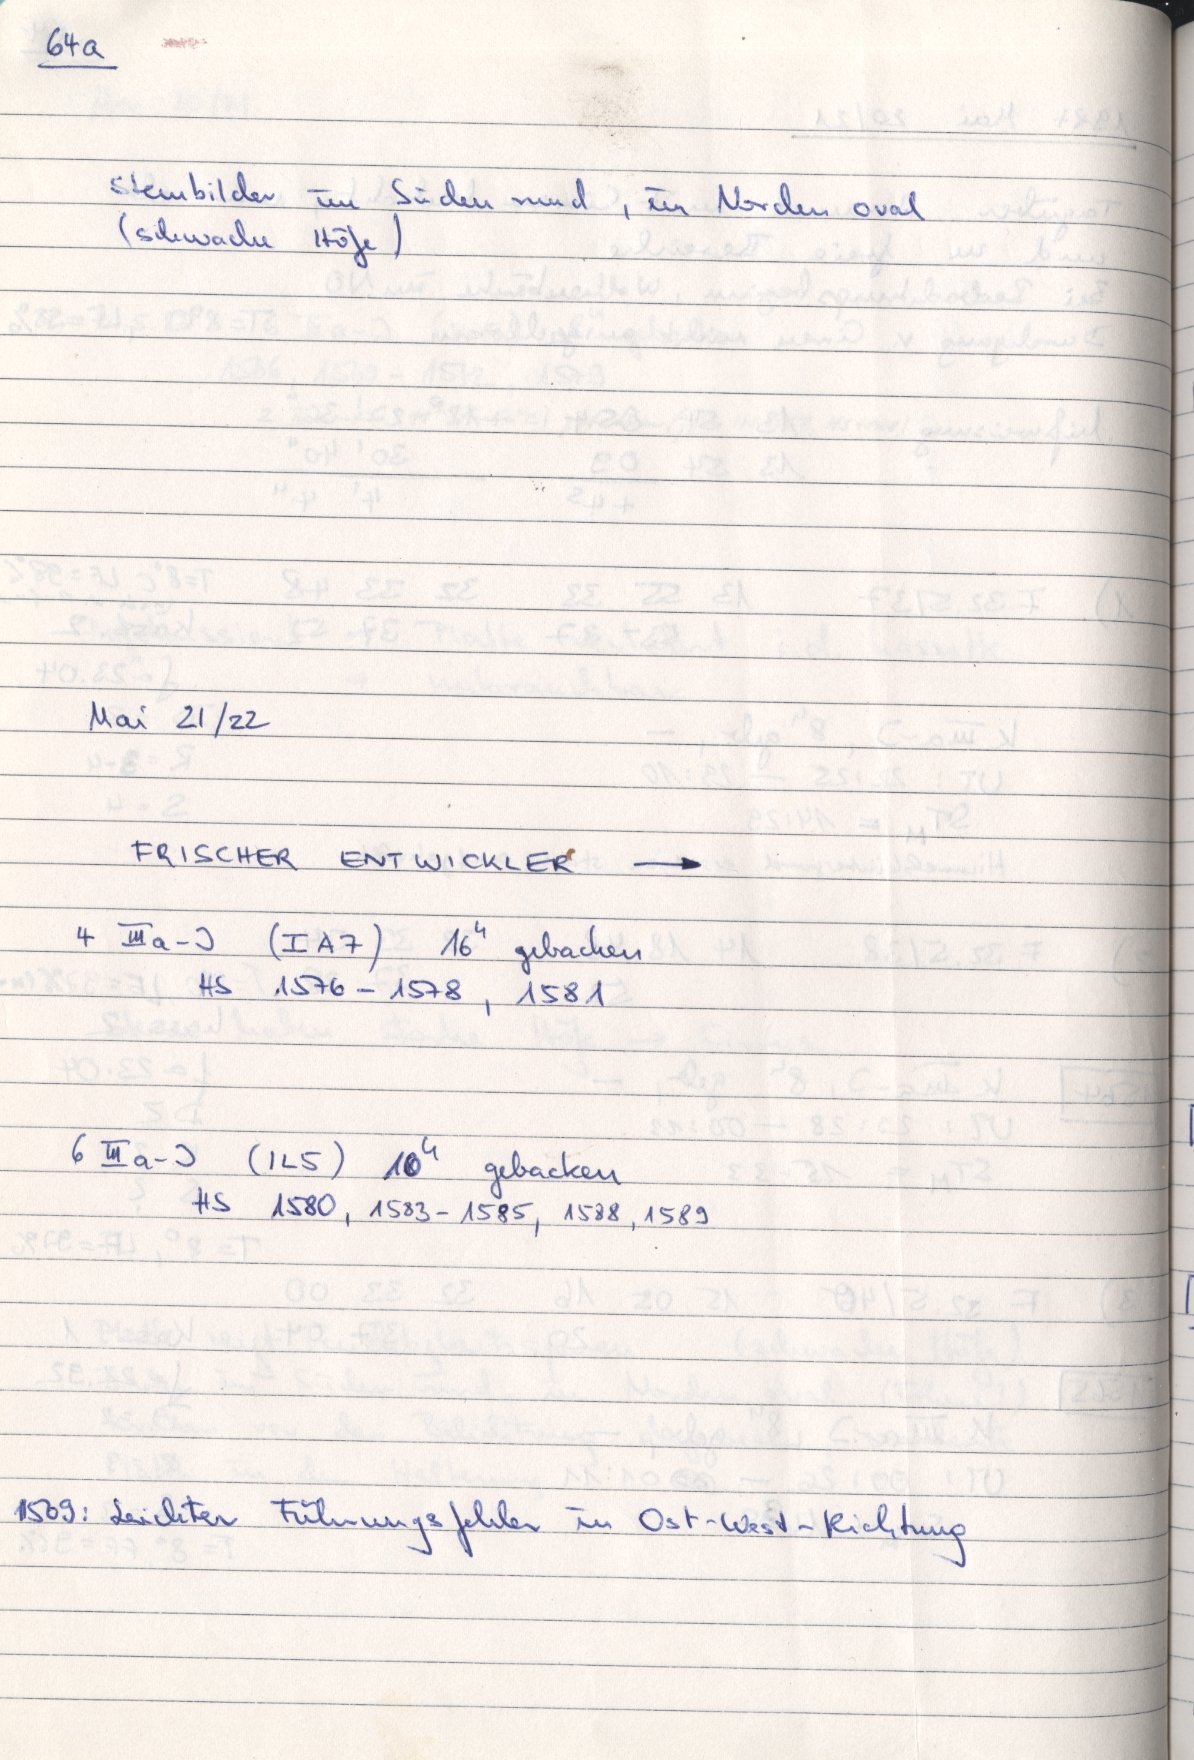 64a
Sternbilder im Süden rund, im Norden oval
(schwache Höfe)
Mai 21/22
FRISCHER ENTWICKLER →
4 IIIa-J (IA7) 16h gebacken
HS 1576-1578, 1581
6 IIIa-J (IL5) 10h gebacken
HS 1580, 1583-1585, 1588, 1589
1569: Leichter Führungsfehler in Ost-West-Richtung